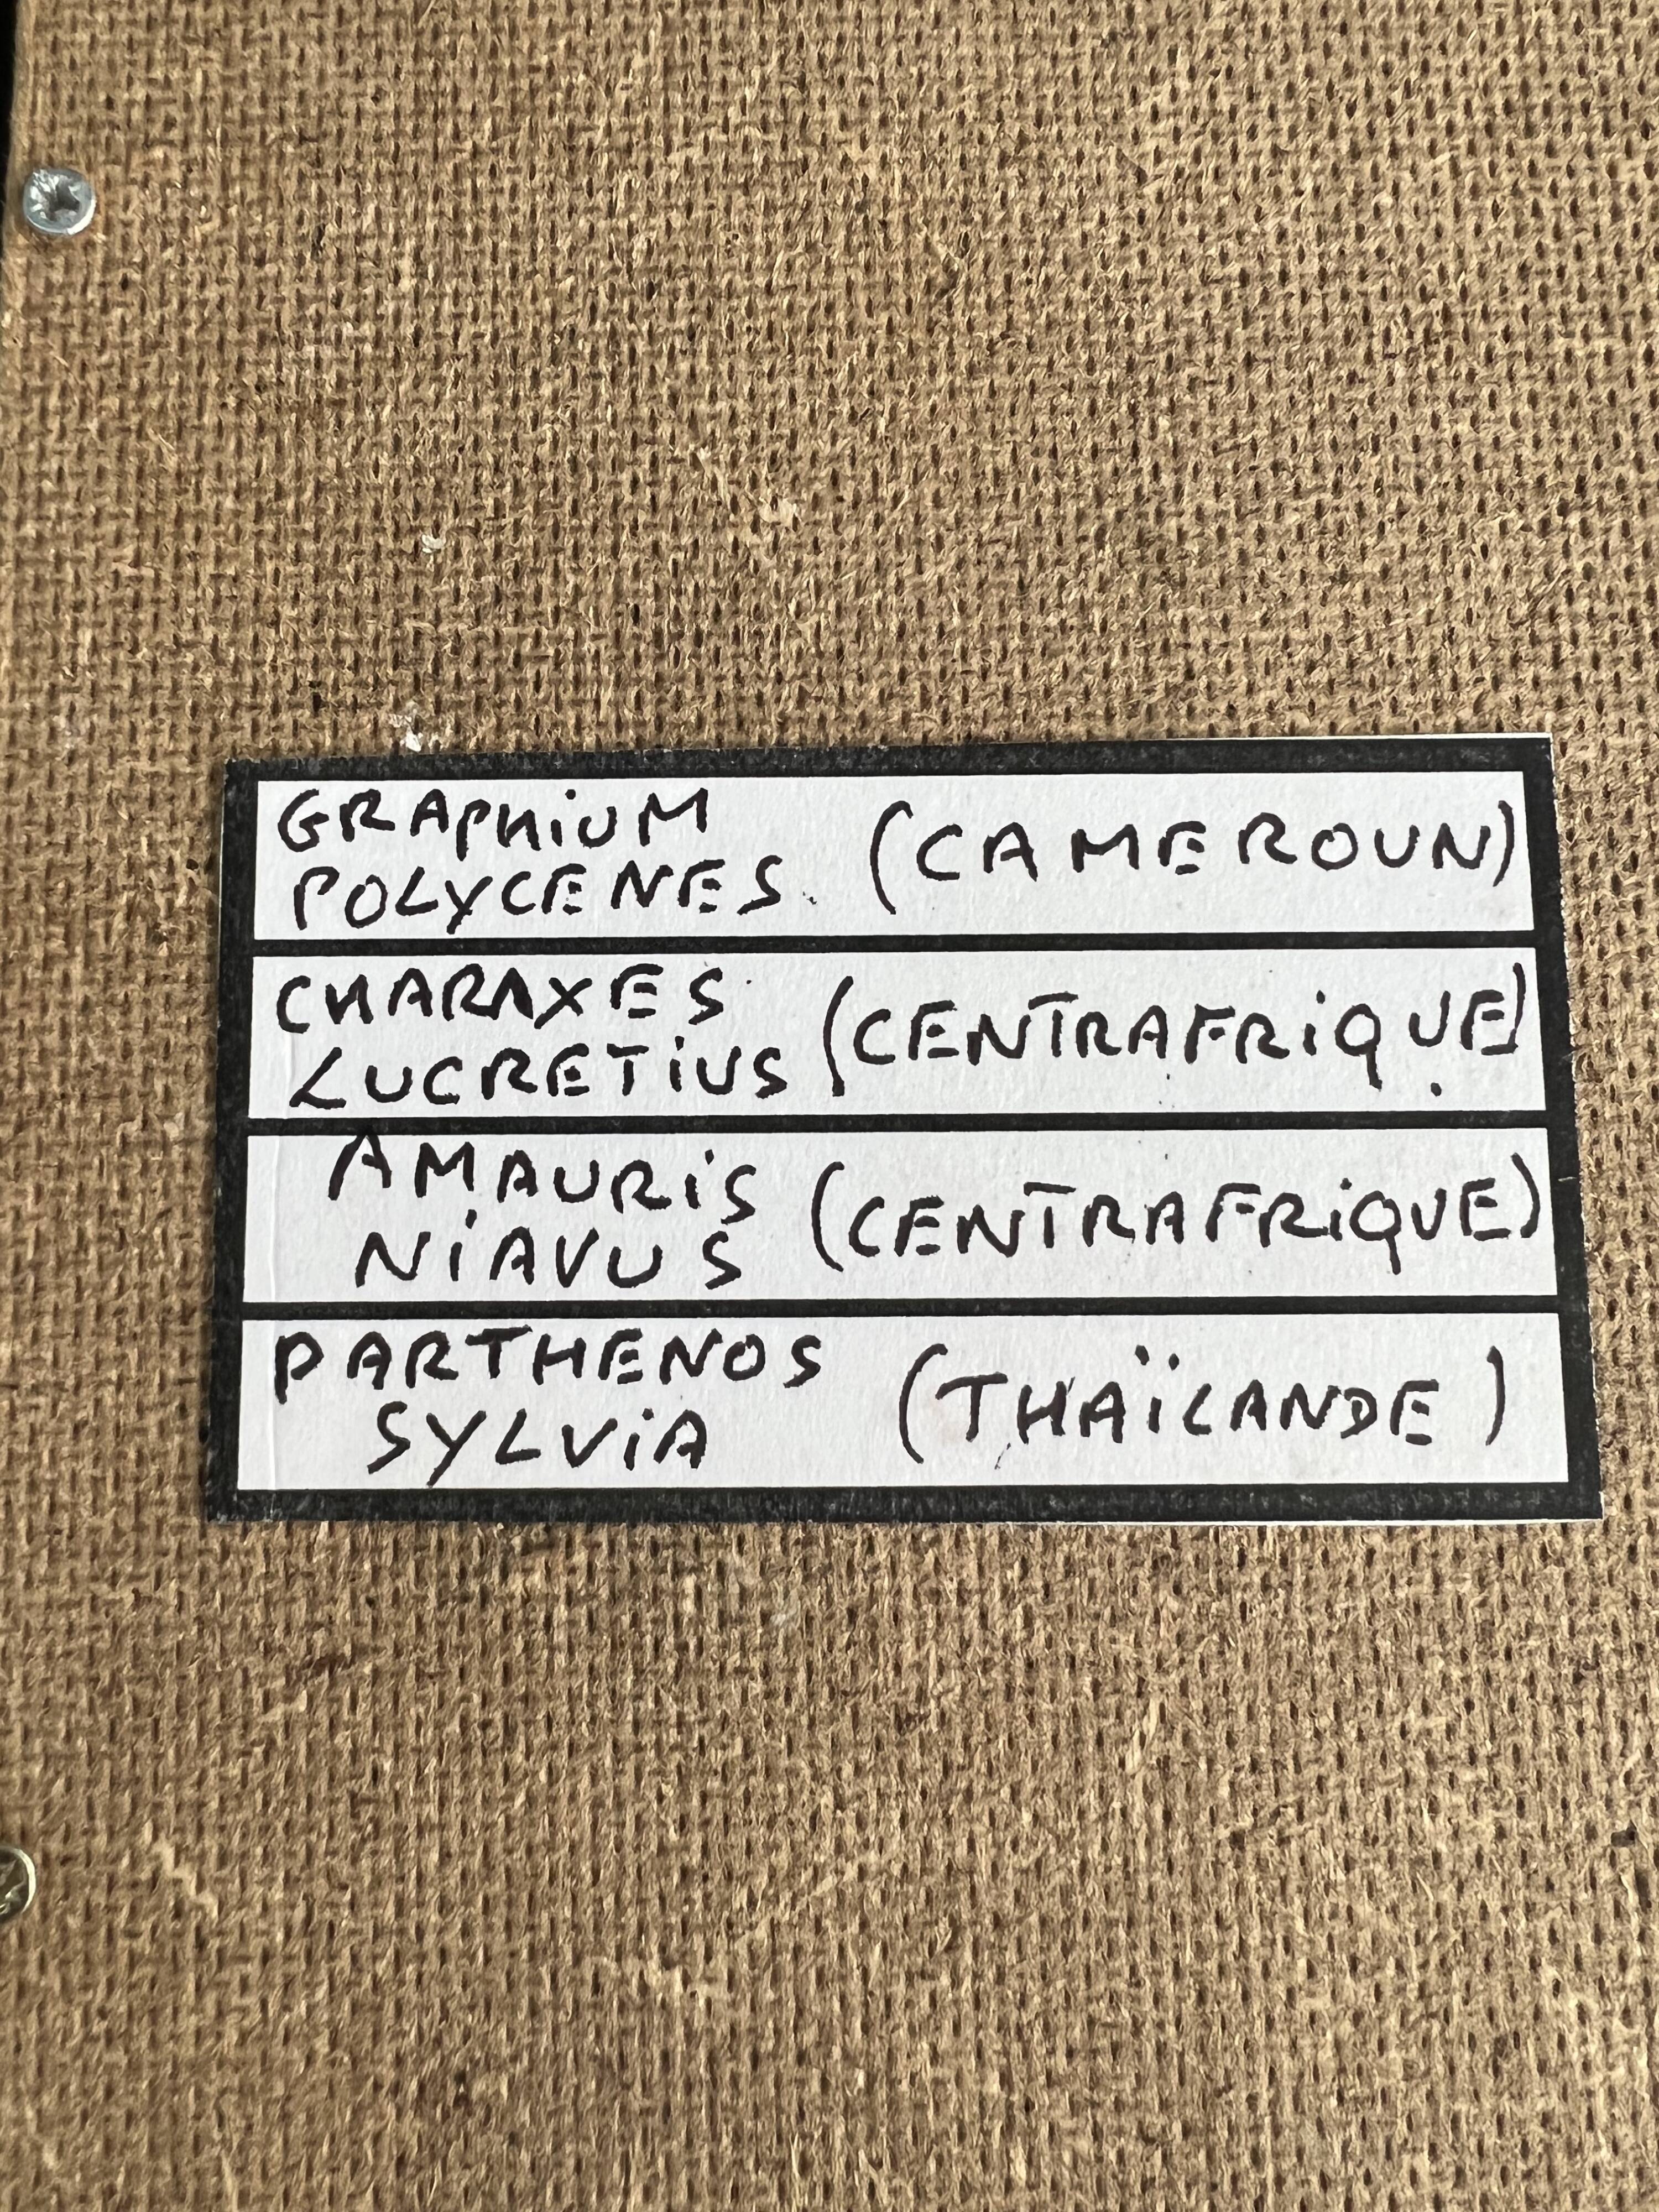 GRAPHiUM
POLYCENES (CAMEROUN)
CHARAXES
LUCRETiUS (CENTRAFRiQUE)
AMAURiS
NiAVUS (CENTRAFRiQUE)
PARTHENOS
SYLViA (THAÏLANDE)